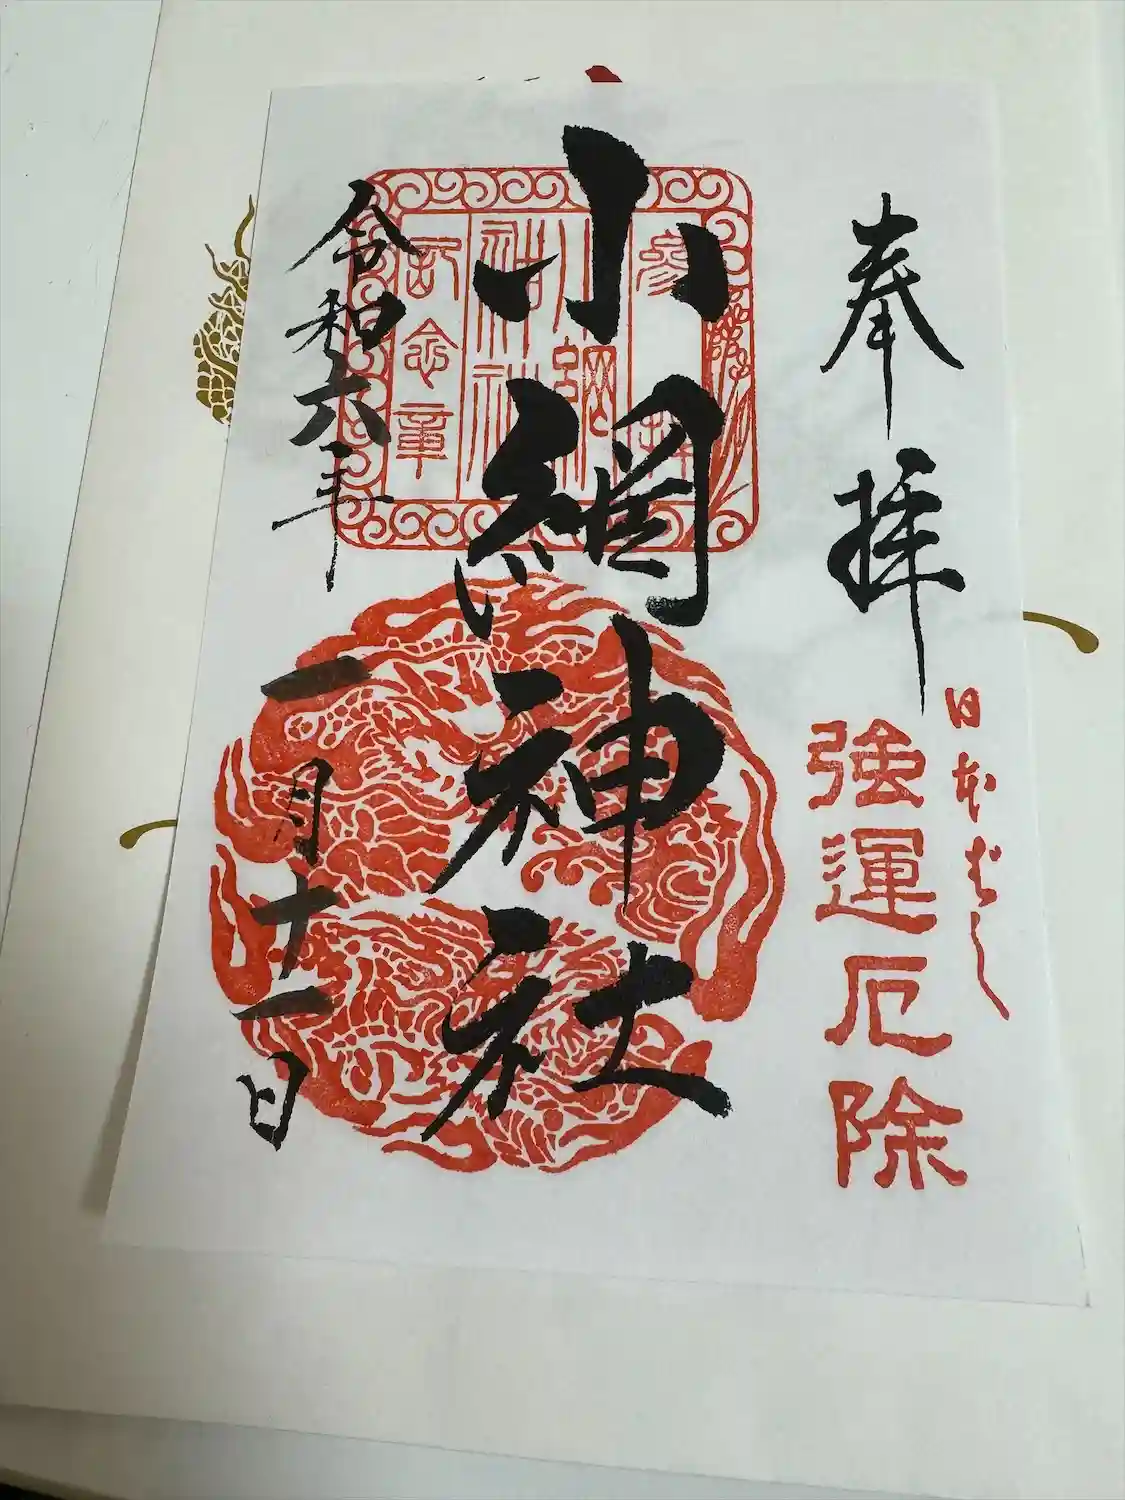 奉拝
日本ばし
強運厄除
小網神社
参拝
小網神社
記念章
令和六年
一月十一日